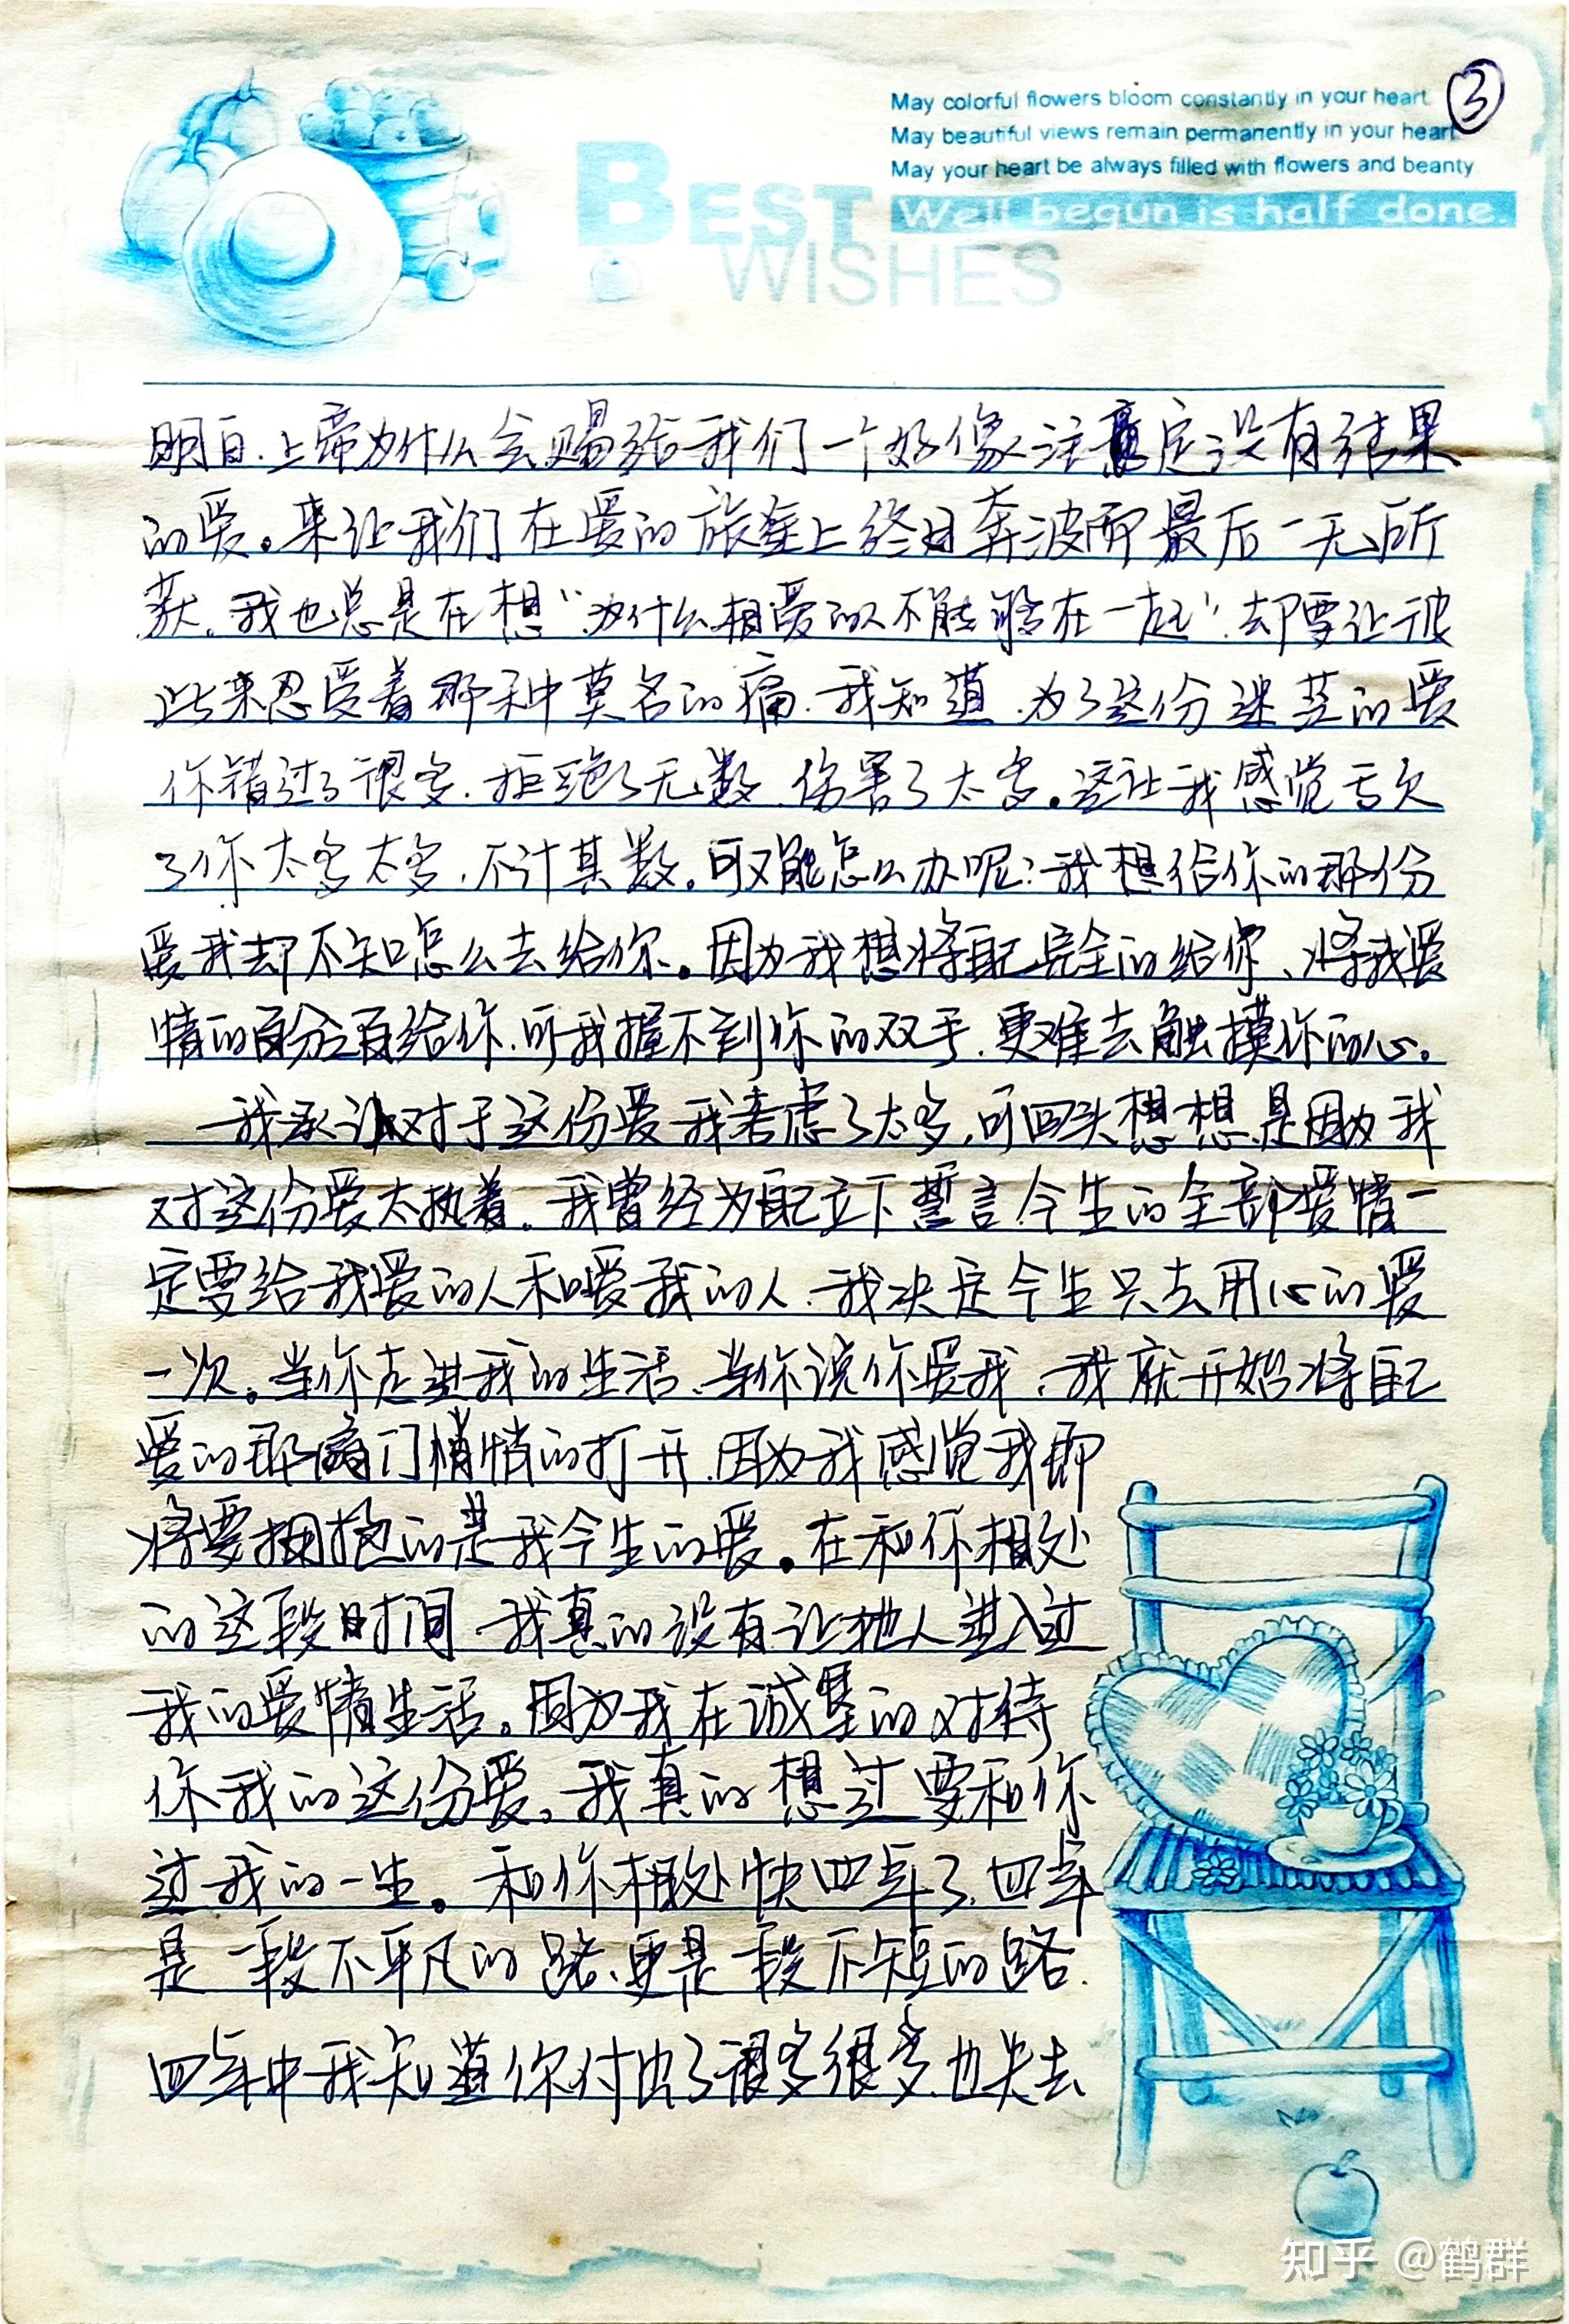 May colorful flowers bloom constantly in your heart
③
May beautiful views remain permanently in your heart
May your heart be always filled with flowers and beanty
BEST
Well begun is half done.
WISHES
明白.上帝为什么会赐给我们一个好像注定没有结果
的爱。来让我们在爱的旅途上终日奔波而最后一无所
获。我也总是在想“为什么相爱的人不能够在一起”.却要让彼
此来忍受着那种莫名的痛.我知道.为了这份迷茫的爱
你错过了很多.拒绝了无数.伤害了太多。这让我感觉亏欠
了你太多太多.不计其数。可又能怎么办呢?我想给你的那份
爱我却不知怎么去给你。因为我想将自己完全的给你、将我爱
情的百分之百给你.可我握不到你的双手.更难去触摸你的心。
我承认对于这份爱我考虑了太多,可回头想想.是因为我
对这份爱太执着。我曾经为自己立下誓言.今生的全部爱情一
定要给我爱的人和爱我的人.我决定今生只去用心的爱
一次。当你走进我的生活、当你说你爱我、我就开始将自己
爱的那扇门悄悄的打开.因为我感觉我即
将要拥抱的是我今生的爱。在和你相处
的这段时间 我真的没有让他人进入过
我的爱情生活。因为我在诚恳的对待
你我的这份爱。我真的想过要和你
过我的一生。和你相处快四年了.四年
是一段不平凡的路、更是一段不短的路.
四年中我知道你付出了很多很多.也失去
知乎 @鹤群